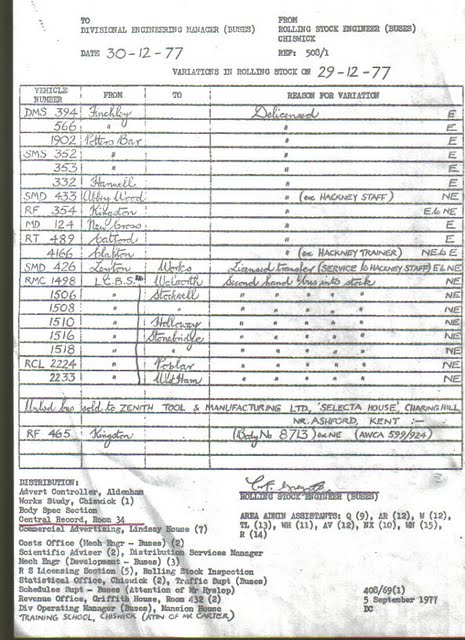 TO FROM
DIVISIONAL ENGINEERING MANAGER (BUSES) ROLLING STOCK ENGINEER (BUSES)
CHISWICK
DATE 30-12-77 REF: 508/1
VARIATIONS IN ROLLING STOCK ON 29-12-77
VEHICLE NUMBER FROM TO REASON FOR VARIATION
DMS 394 Finchley Delicensed E
566 " " E
1902 Potters Bar " E
SMS 352 " " E
353 " " E
332 Hanwell " E
SMD 433 Abbey Wood " (exc HACKNEY STAFF) NE
RF 354 Kingston " E & NE
MD 124 New Cross " E
RT 489 Catford " E
4166 Clapton " (exc HACKNEY TRAINER) NE & E
SMD 426 Leyton Works Licensed transfer (SERVICE to HACKNEY STAFF) E & NE
RMC 1498 L.C.B.S. Ltd Walworth Second hand bus into stock NE
1506 " Stockwell " " " " " NE
1508 " " " " " " " NE
1510 " Holloway " " " " " NE
1516 " Stonebridge " " " " " NE
1518 " " " " " " " NE
RCL 2224 " Poplar " " " " " NE
2233 " West Ham " " " " " NE
Unlsd bus sold to ZENITH TOOL & MANUFACTURING LTD, 'SELECTA HOUSE', CHARING HILL,
NR. ASHFORD, KENT :-
RF 465 Kingston (Body No 8713) ex NE (AWCA 599/924)
DISTRIBUTION:
Advert Controller, Aldenham
Works Study, Chiswick (1) ROLLING STOCK ENGINEER (BUSES)
Body Spec Section
Central Record, Room 34 AREA ADMIN ASSISTANTS: Q (9), AR (12), W (12),
Commercial Advertising, Lindsay House (7) TL (13), WH (11), AV (12), NX (10), HN (15),
R (14)
Costs Office (Mech Engr - Buses) (2)
Scientific Adviser (2), Distribution Services Manager
Mech Engr (Development - Buses) (3)
R S Licensing Section (5), Rolling Stock Inspection
Statistical Office, Chiswick (2), Traffic Supt (Buses)
Schedules Supt - Buses (Attention of Mr Hyslop) 408/69(1)
Revenue Office, Griffith House, Room 432 (2) 5 September 1977
Div Operating Manager (Buses), Mansion House DC
TRAINING SCHOOL, CHISWICK (ATTN OF MR CARTER)